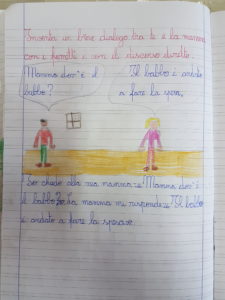 Inventa un breve dialogo tra te e la mamma
con i fumetti e con il discorso diretto.
Mamma dov'è il
babbo?
Il babbo è andato
a fare la spesa.
Io chiedo alla mia mamma: "Mamma dov'è
il babbo?" La mamma mi risponde: "Il babbo
è andato a fare la spesa".